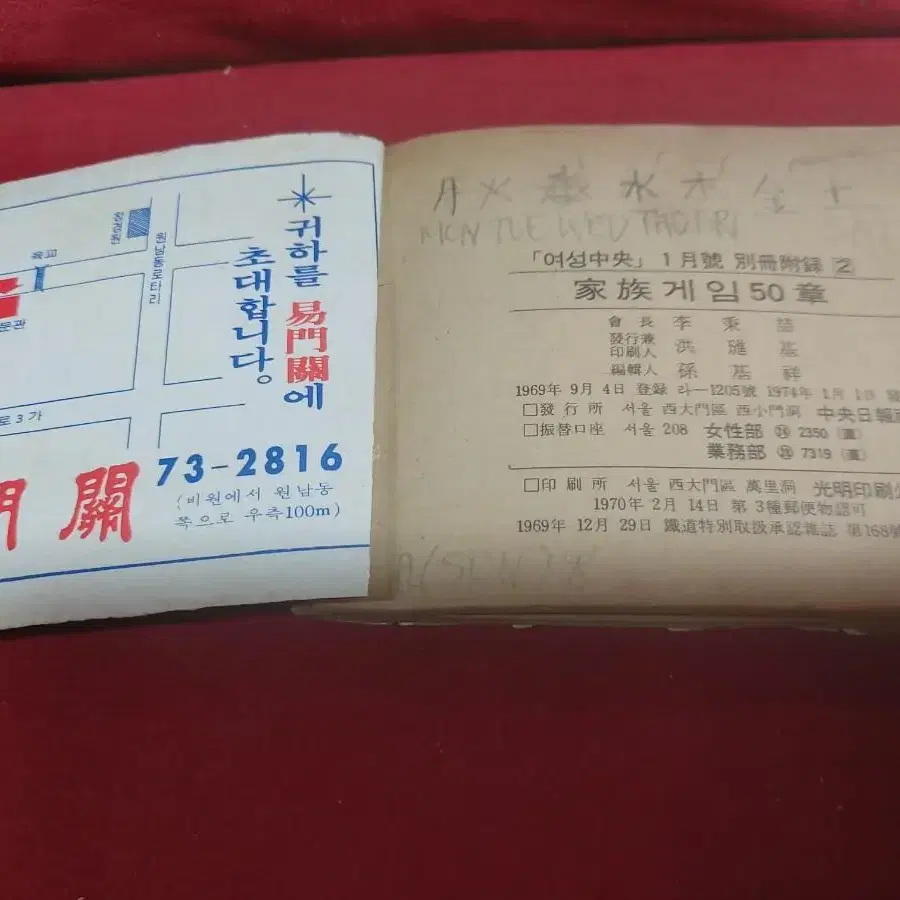 귀하를 易門關에
초대합니다。
로3가
門 關
73-2816
(비원에서 원남동
쪽으로 우측100m)
月 火 水 木 金 土
MON TUE WED THUR
「여성中央」 1月號 別冊附録 2
家族게임50章
會長 李秉喆
發行兼
印刷人 洪璡基
編輯人 孫基祥
1969年 9月 4日 登録 라—1205號 1974年 1月 1日 發
□發行所 서울 西大門區 西小門洞 中央日報
□振替口座 서울 208 女性部 2350
業務部 7319
□印刷所 서울 西大門區 萬里洞 光明印刷公
1970年 2月 14日 第3種郵便物認可
1969年 12月 29日 鐵道特別取扱承認雜誌 第168號